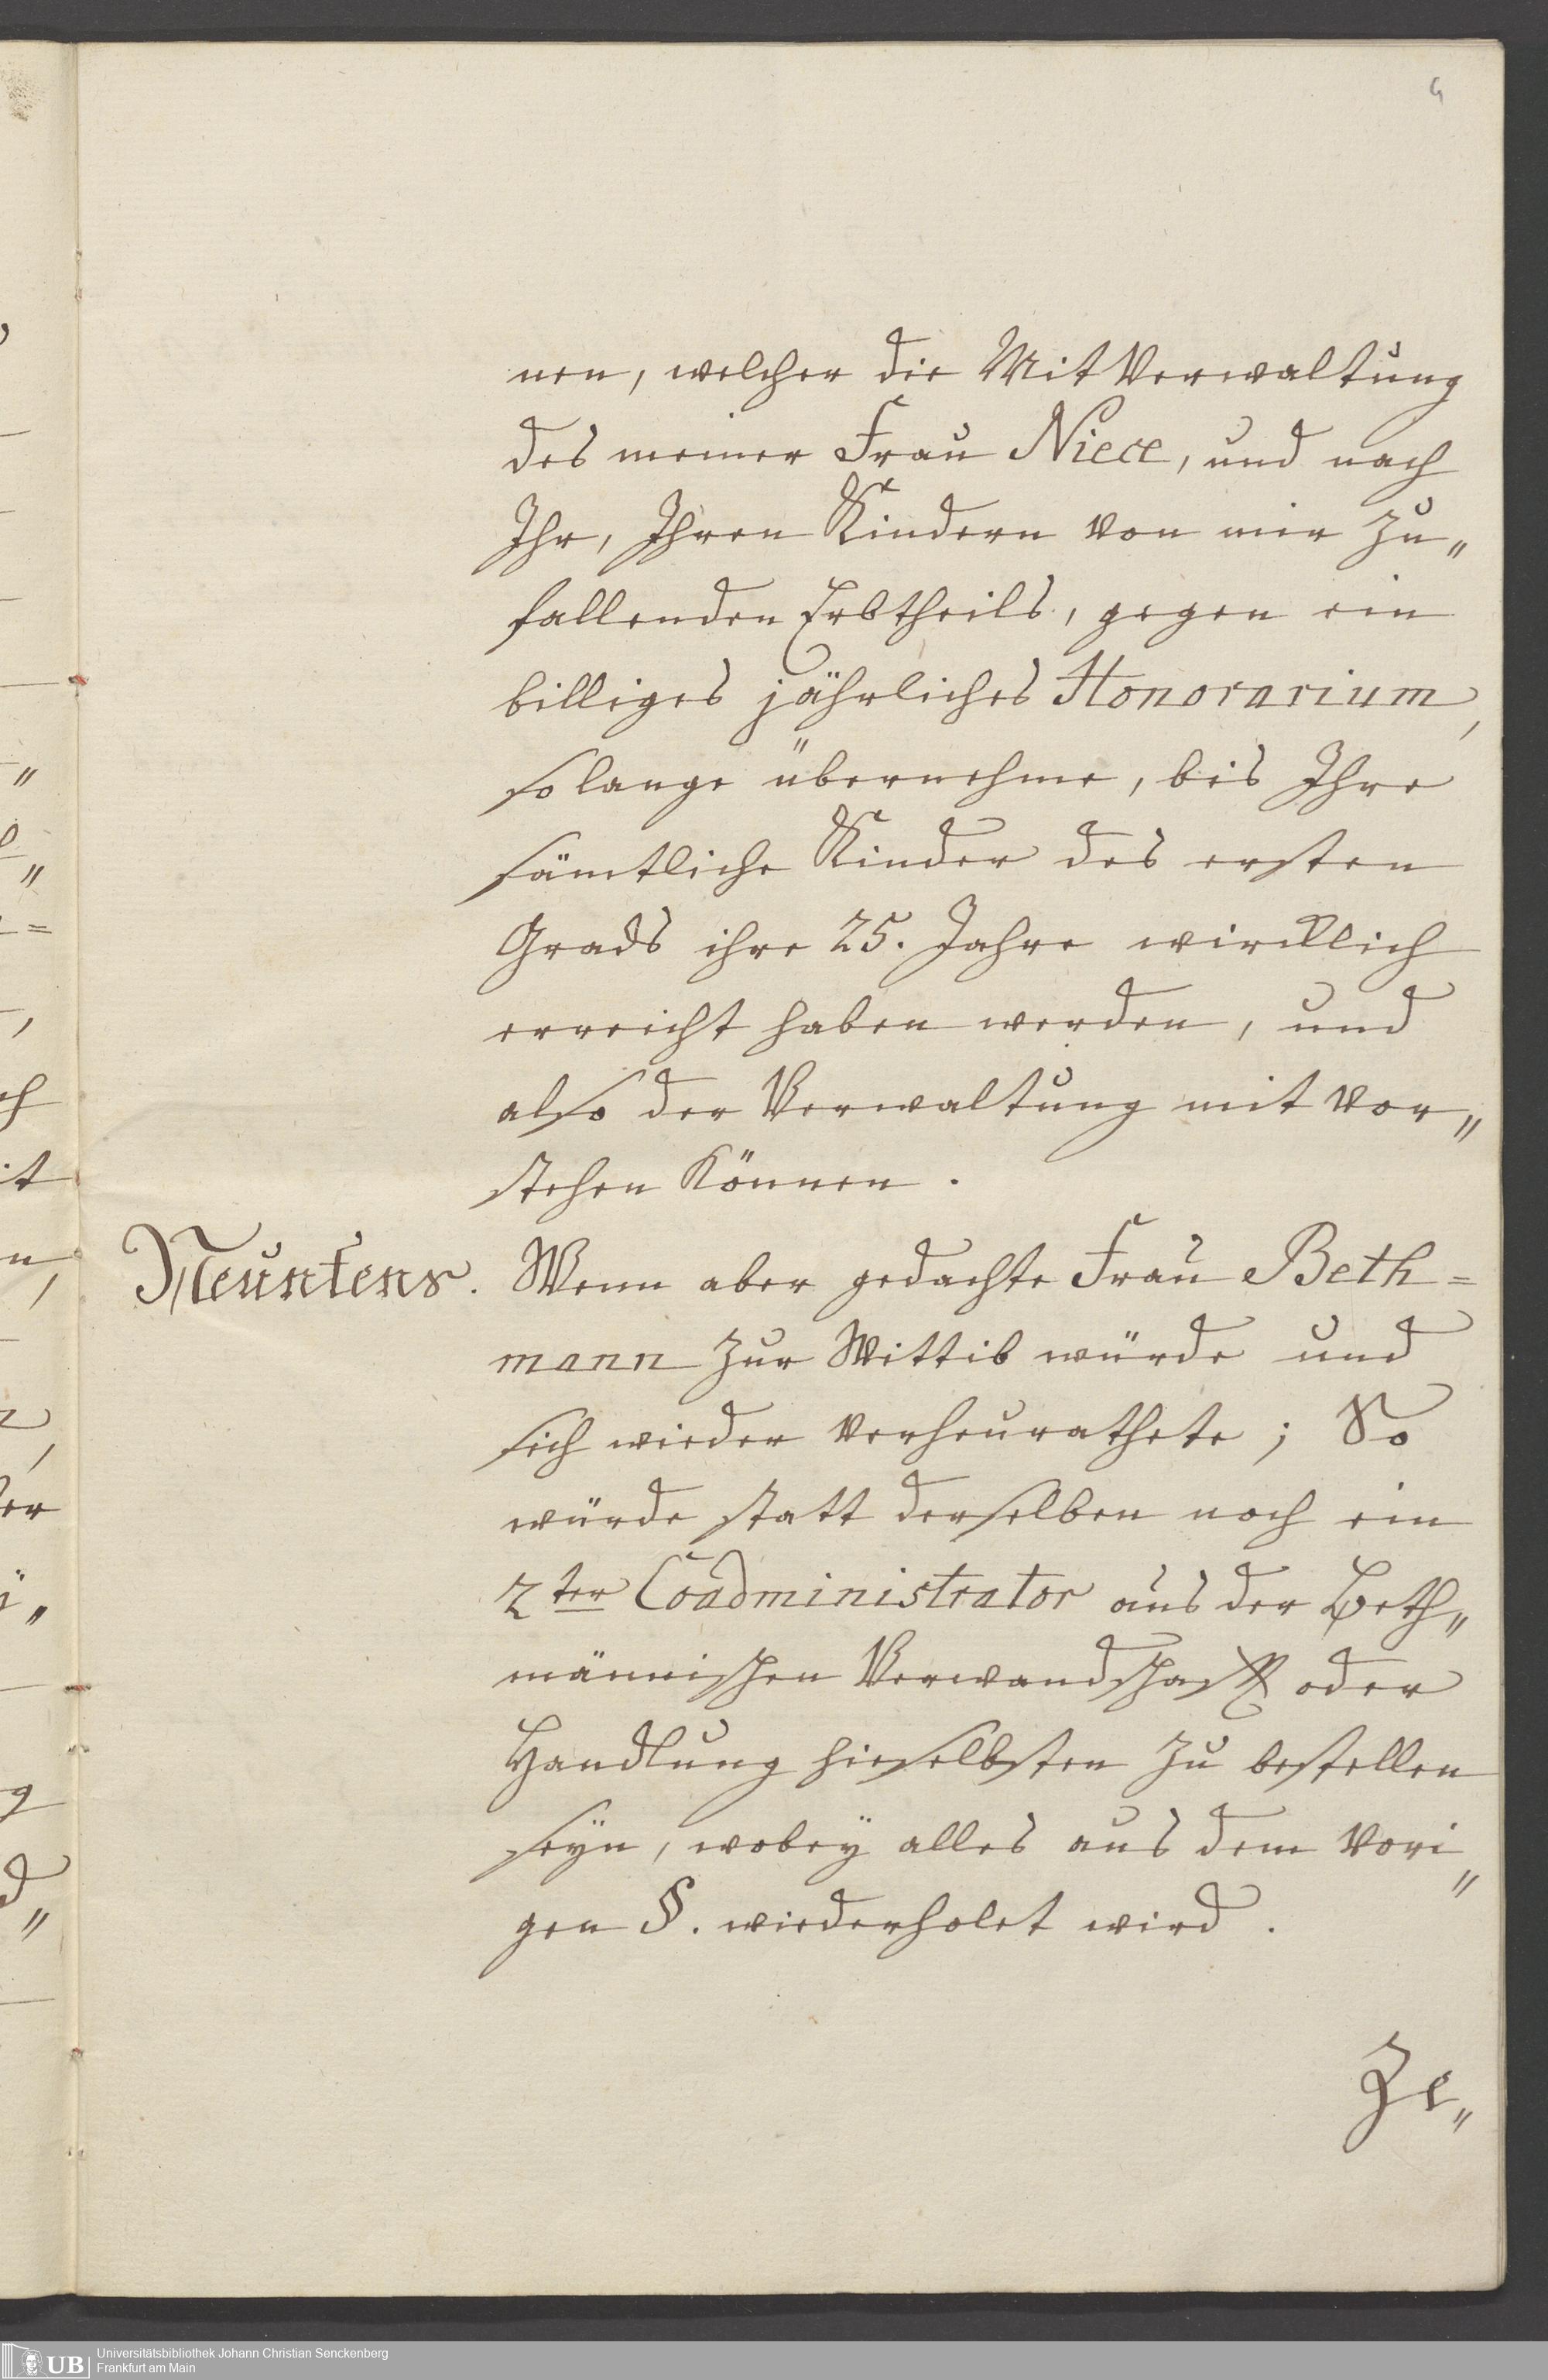 4
nen, welcher die Mit Verwaltung
des meiner Frau Niece, und nach
Ihr, Ihren Kindern von mir zu„
fallenden Erbtheils, gegen ein
billiges jährliches Honorarium,
so lange übernehme, bis Ihre
sämtliche Kinder des ersten
Grads ihre 25. Jahre wircklich
erreicht haben werden, und
also der Verwaltung mit vor„
stehen können.
Neuntens. Wenn aber gedachte Frau Beth=
mann zur Wittib würde und
sich wieder verheurathete; So
würde statt derselben noch ein
2ter Coadministrator aus der Beth„
männischen Verwandschafft oder
Handlung hieselbsten zu bestellen
seÿn, wobeÿ alles aus dem vori„
gen §. wiederholet wird.
Ze„
UB Universitätsbibliothek Johann Christian Senckenberg
Frankfurt am Main